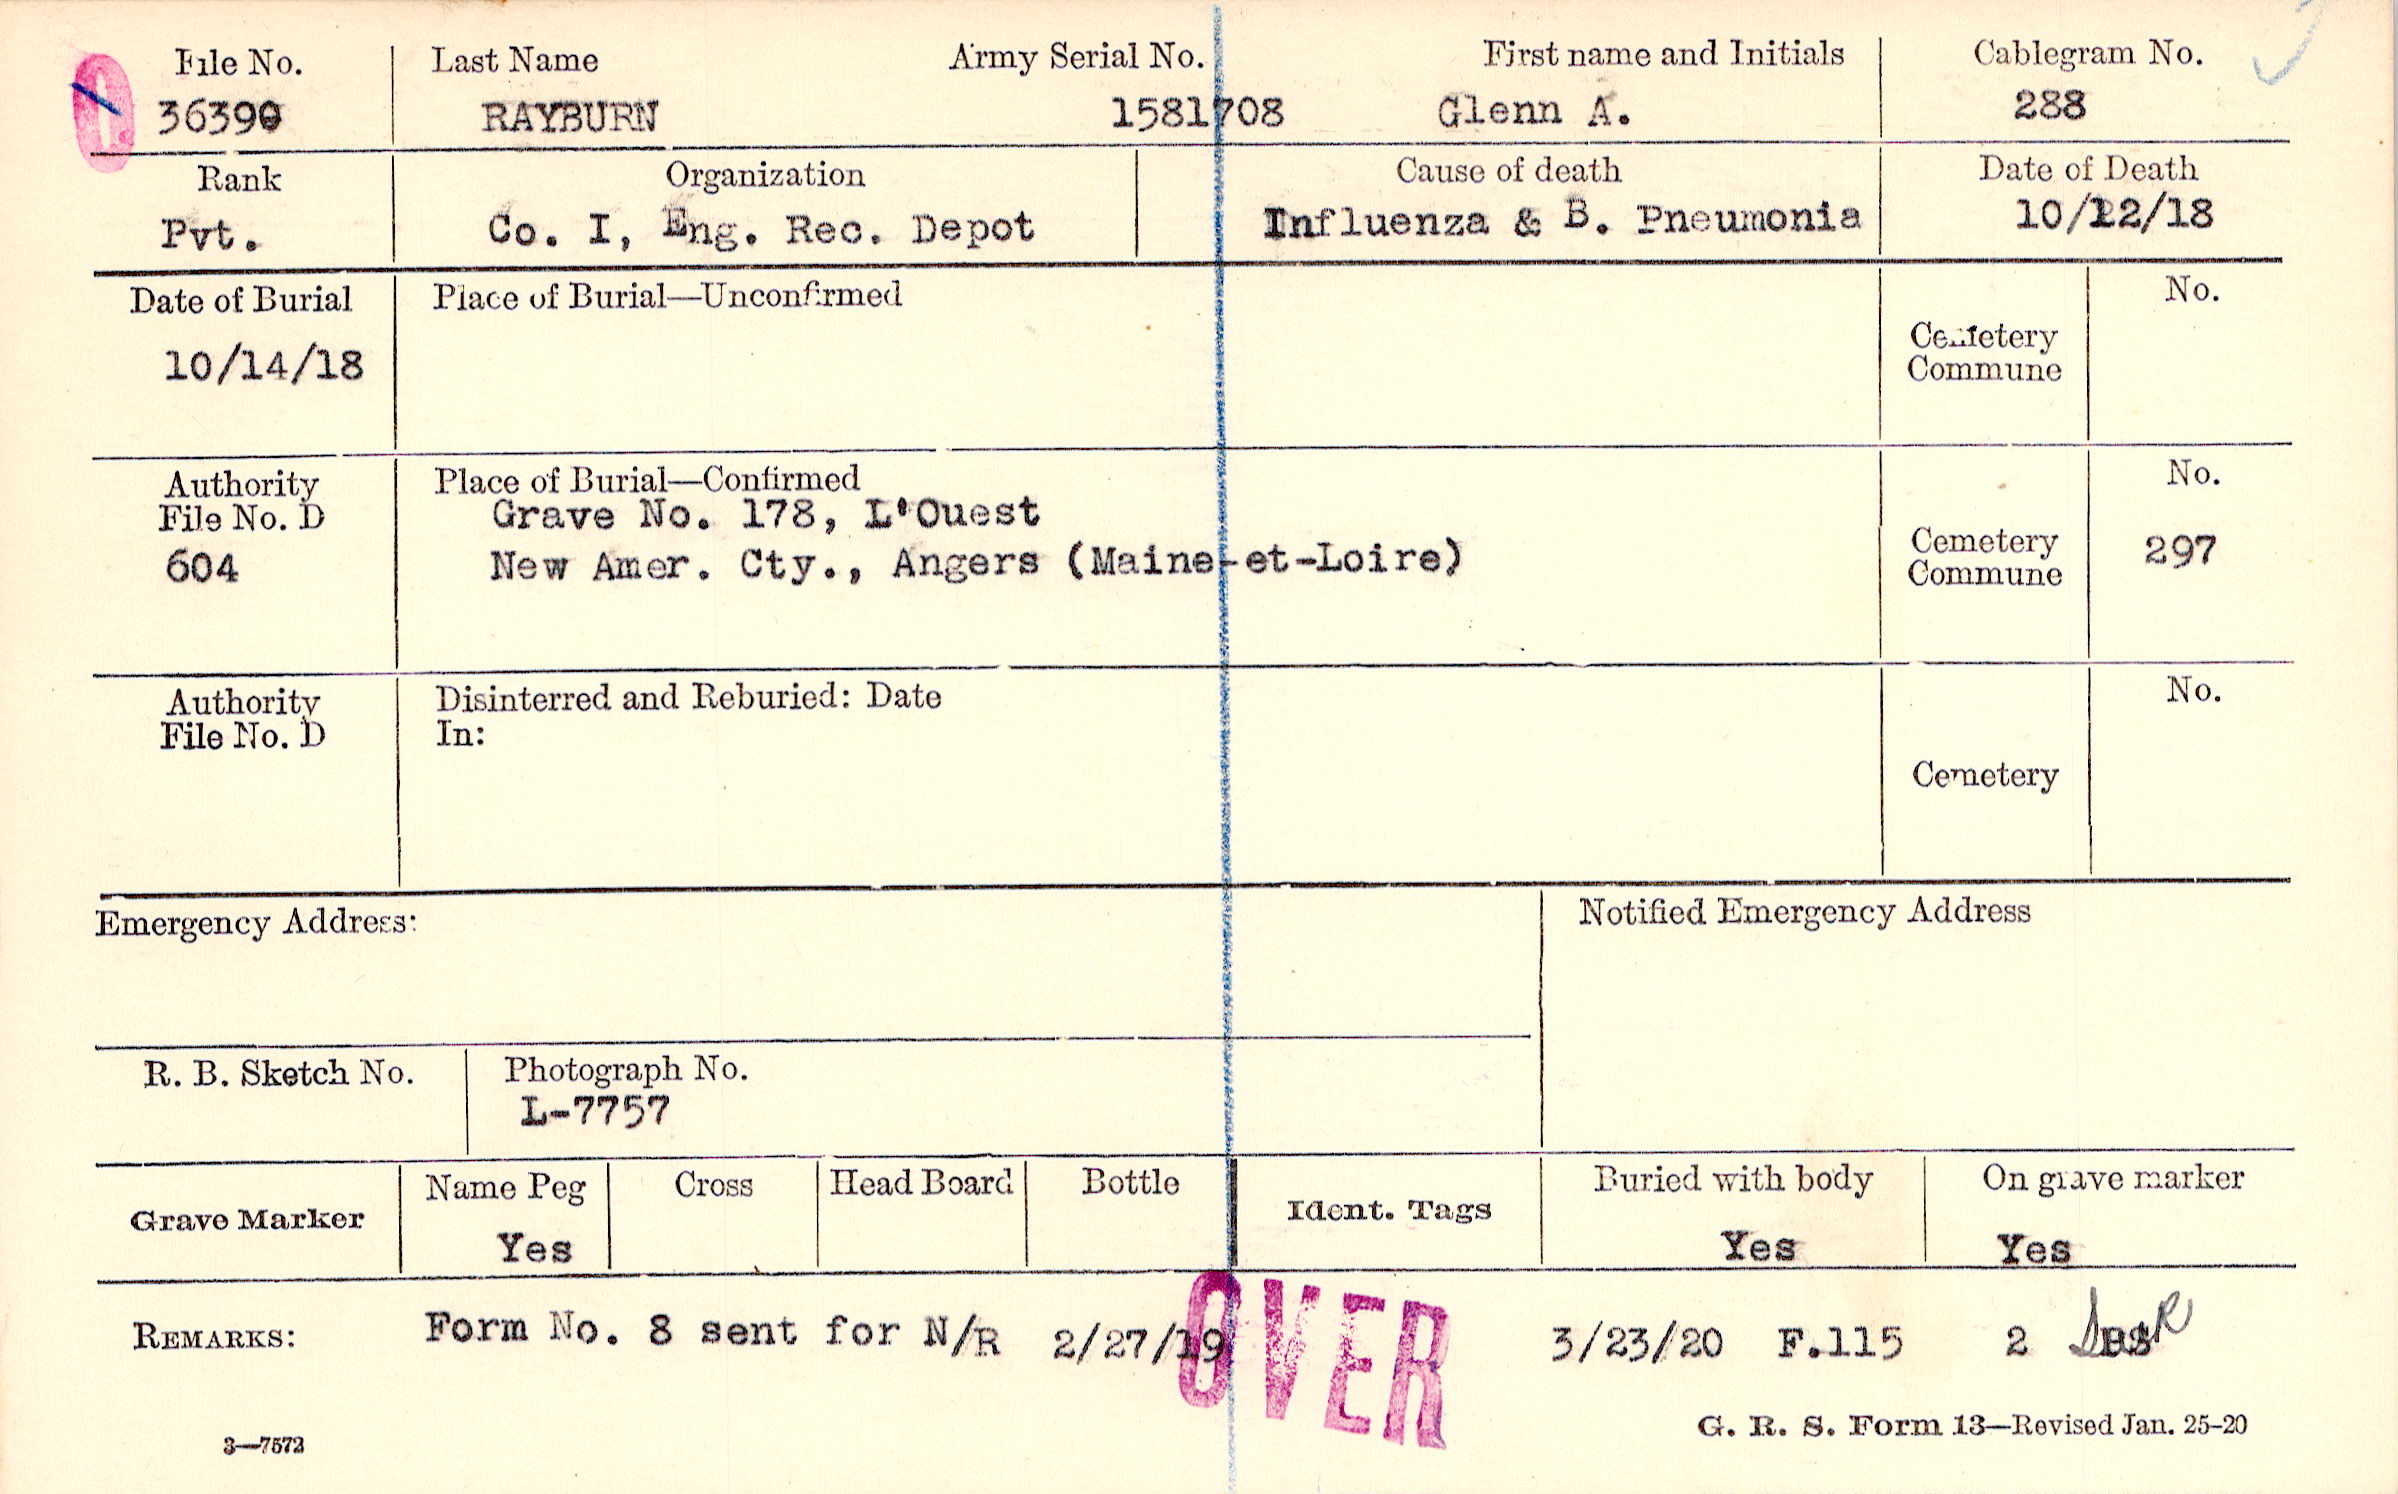 File No. Last Name Army Serial No. First name and Initials Cablegram No.
36390 RAYBURN 1581708 Glenn A. 288
Rank Organization Cause of death Date of Death
Pvt. Co. I, Eng. Rec. Depot Influenza & B. Pneumonia 10/12/18
Date of Burial Place of Burial—Unconfirmed No.
10/14/18 Cemetery
Commune
Authority Place of Burial—Confirmed No.
File No. D Grave No. 178, L'Ouest Cemetery
604 New Amer. Cty., Angers (Maine-et-Loire) Commune 297
Authority Disinterred and Reburied: Date No.
File No. D In:
Cemetery
Emergency Address: Notified Emergency Address
R. B. Sketch No. Photograph No.
L-7757
Grave Marker Name Peg Cross Head Board Bottle Ident. Tags Buried with body On grave marker
Yes Yes Yes
REMARKS: Form No. 8 sent for N/R 2/27/19 3/23/20 F.115 2
OVER
3—7572 G. R. S. Form 13—Revised Jan. 25-20